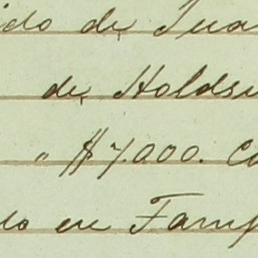 ido de Jua
de Holdsw
" $7.000. Co
do en Tamp